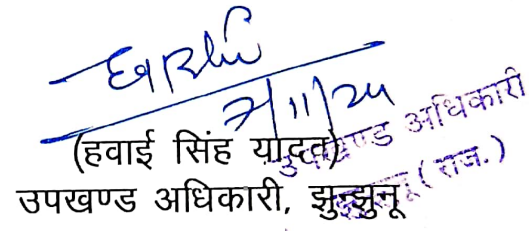 7/11/24
(हवाई सिंह यादव)
उपखण्ड अधिकारी, झुन्झुनू
उपखण्ड अधिकारी
झुन्झुनू (राज.)